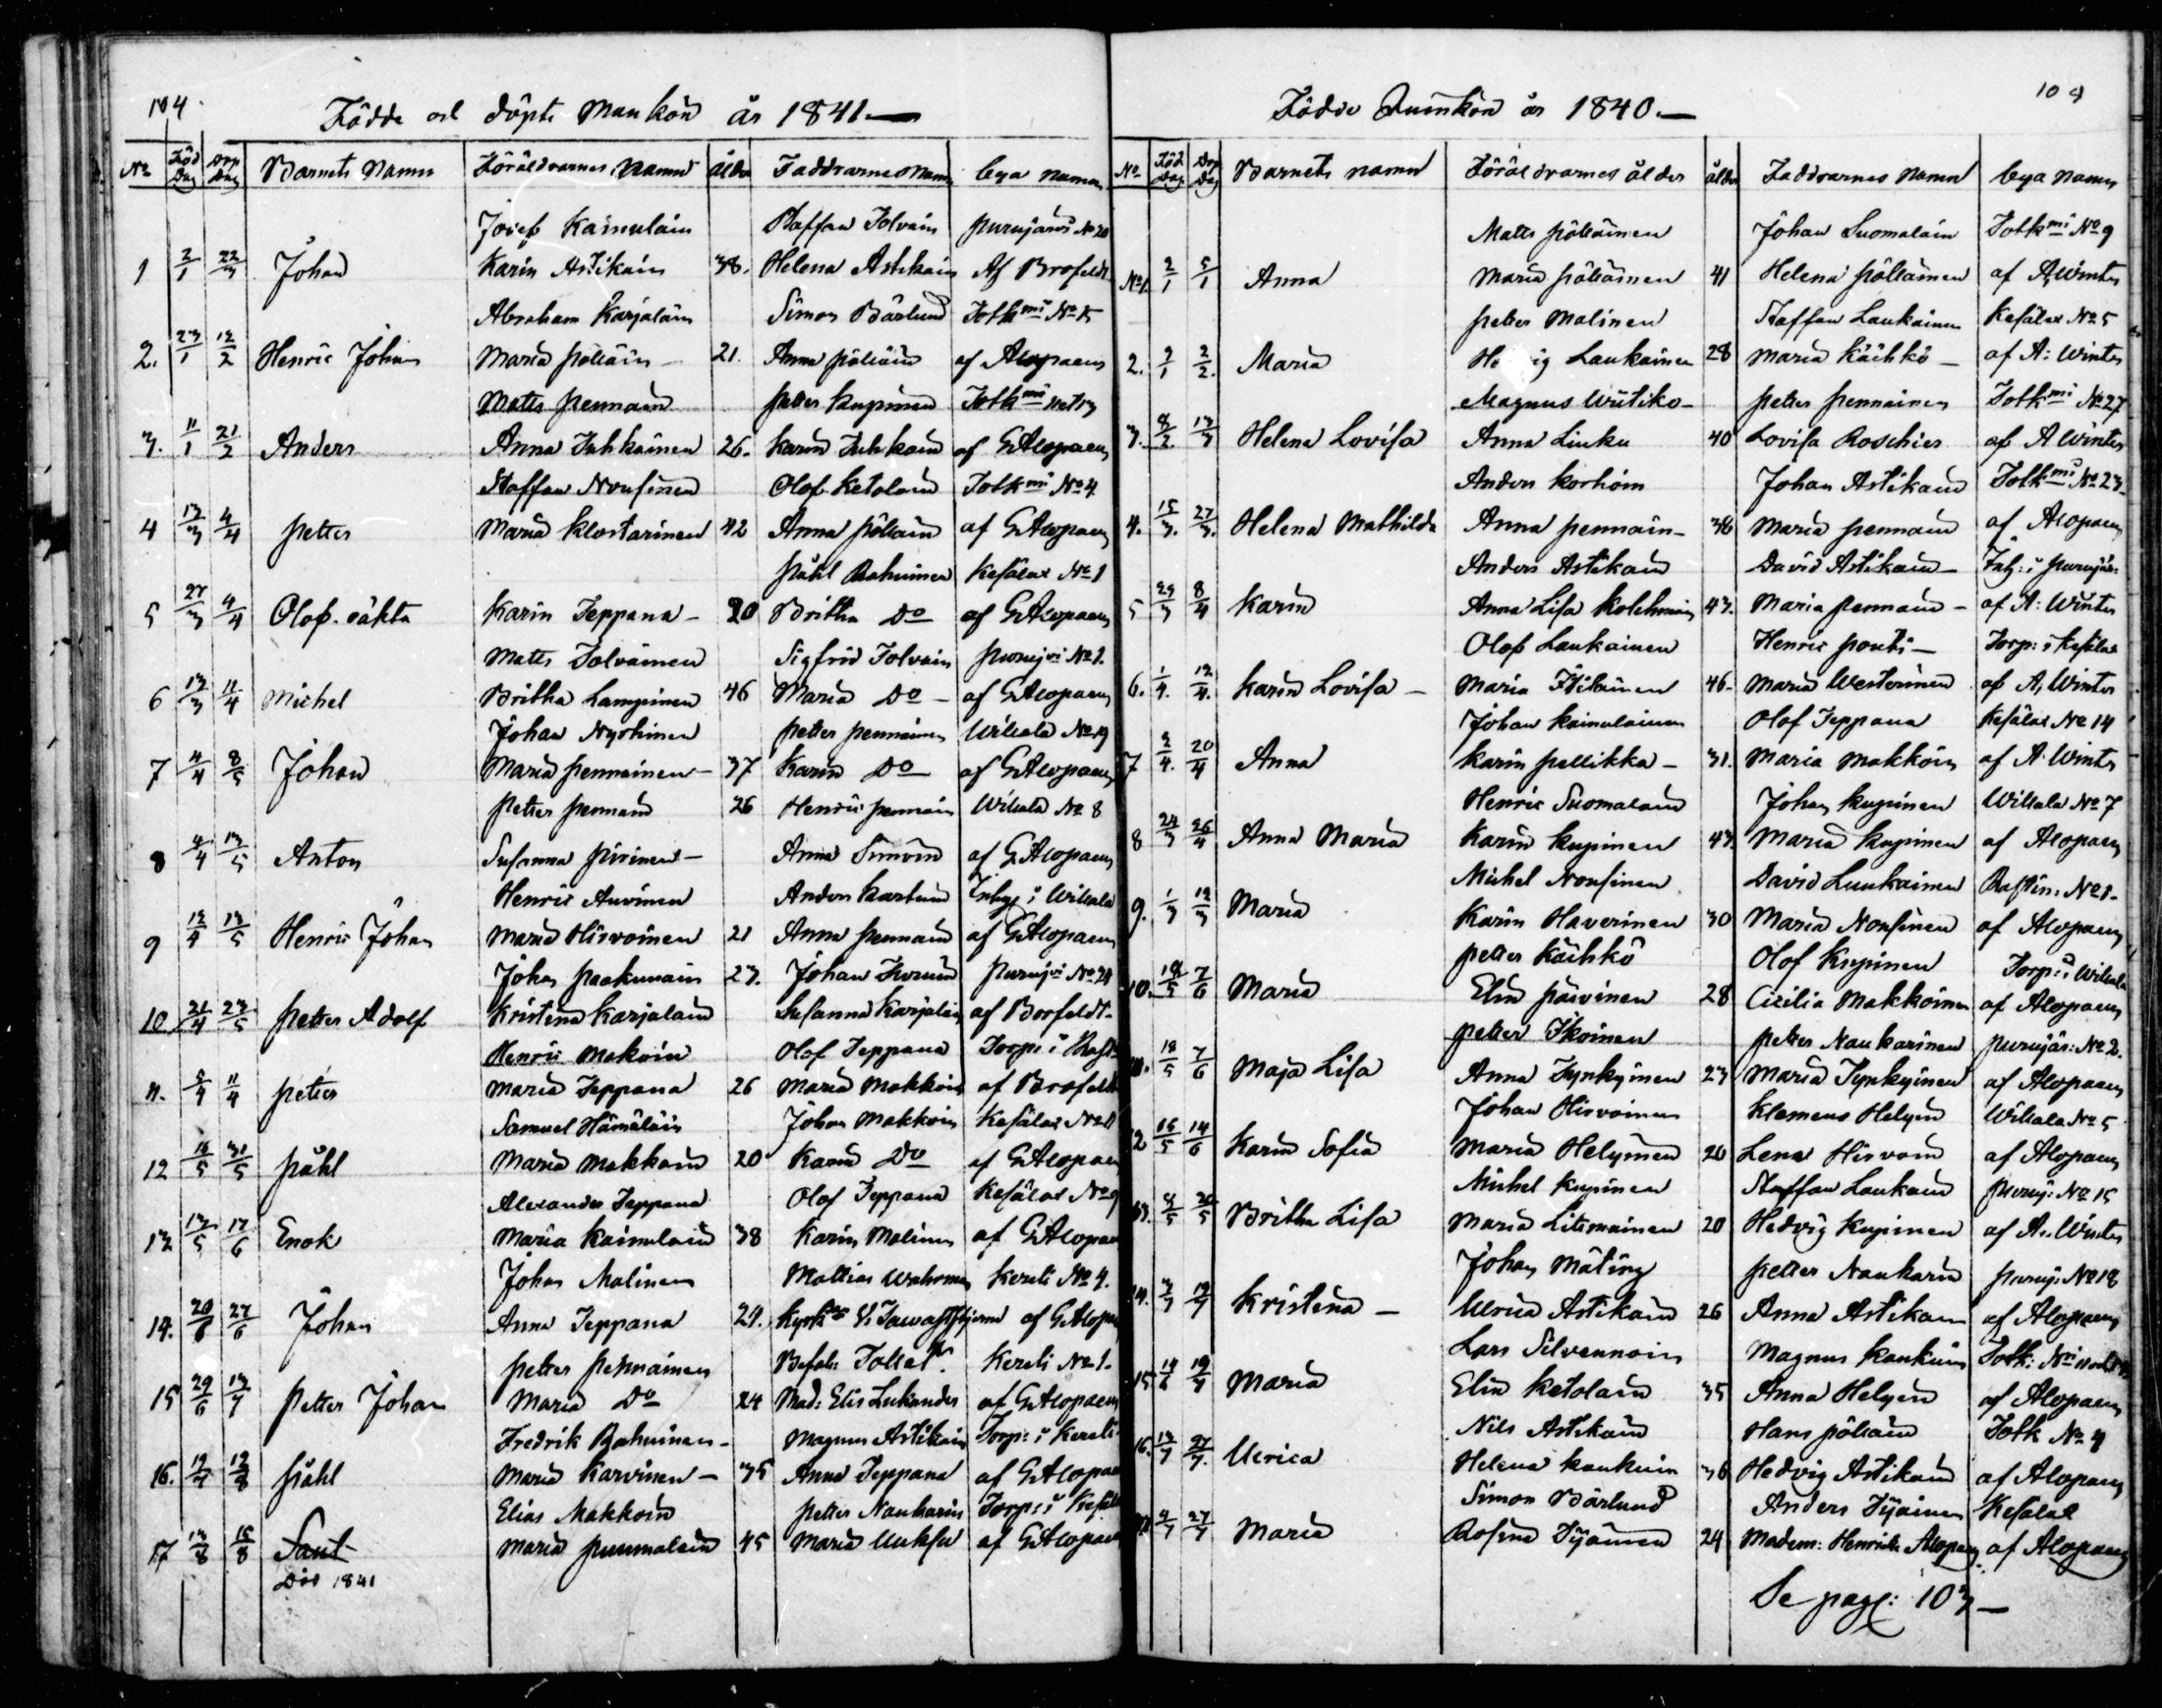 104.
Födde och döpte Mankön år 1841.—
No Föd Dag Döp Dag Barnets Namn Föräldrarnes Namn ålder Faddrarnes Namn Bya namn
Josef Kainulain Staffan Tolvain Purujärvi No 20
1 2/1 22/3 Johan Karin Astikain 38. Helena Astikain Af Brofeldt
Abraham Karjalain Simon Bärlund Totkmi No 5
2. 23/1 12/2 Henric Johan Maria pöllain 21. Anna pöllain af Alopaeus
Matts pennain petter Kupinen Totkmi
3. 11/1 21/2 Anders Anna Juhkainen 26. Karin Juhkain af G Alopaeus
Staffan Nousinen Olof Ketolain Totkmi No 4
4 13/3 4/4 petter Maria Klostarinen 42 Anna pöllain af G Alopaeus
påhl Rahuinen Kesälax No 1
5 27/3 4/4 Olof. oäkta Karin Teppana - 20 Britha Do af G Alopaeus
Matts Tolvainen Sigfrid Tolvain purujvi No 2.
6 13/3 11/4 Michel Britha Lampinen 46 Maria Do - af G Alopaeus
Johan Nyshinen petter pennainen Wiluala No 19
7 4/4 8/5 Johan Maria pennainen - 37 Karin Do af G Alopaeus
petter pennain 26 Henric pennain Wiluala No 8
8 4/4 13/5 Anton Susanna pirinen - Anna Simoin af G Alopaeus
Henric Auvinen Anders Karhuin Inhys i Wiluala
9 12/4 13/5 Henric Johan Maria Hirvoinen 21 Anna pennain af G Alopaeus
Johan paakunain 23. Johan Purujvi No 24
10 21/4 23/5 petter Adolf Kristina Karjalain Susanna Karjalain af Borfeldt-
Henric Makoin Olof Teppana Torp: i
11. 5/4 11/4 petter Maria Teppana 26 Maria Makkoin af Brofeldt
Samuel Hämäläin Johan Makkoin Kesälax No 11
12 16/5 31/5 påhl Maria Makkoin 20 Karin Do af G Alopaeus
Alexander Teppana Olof Teppana Kesälax No 9
13 13/5 17/6 Enok Maria Kainulain 38 Karin Malinen af G Alopaeus
Johan Malinen Mattias Wahrman Kereli No 4.
14. 20/6 27/6 Johan Anna Teppana 24. af G Alopaeus
petter pennainen Kereli No 1.
15 29/6 13/7 Petter Johan Maria Do 24 Mad: Elis Lukander af G Alopaeus
Fredrik Rahuinen - Magnus Astikain Torp: i Kereli
16. 19/7 12/8 påhl Maria Karvinen - 35 Anna Teppana af G Alopaeus
Elias Makkoin petter Naukarin Torp: i Kesäla
17 13/8 15/8 Saul Maria puumalain 45 Maria Uuksu af G Alopaeus
Död 1841
109
Födde Quinkön år 1840.—
No Föd Dag Döp Dag Barnets namn Föräldrarnes ålder ålder Faddrarnes Namn bya Namn
Matts pöllainen Johan Suomalain Totkmi No 9
No 1. 2/1 5/1 Anna Maria pöllainen 41 Helena pöllainen af A Winter
petter Malinen Staffan Laukainen Kesälax No 5
2. 2/1 2/2. Maria Laukainen 28 Maria Käihkö - af A: Winter
Magnus Wiitiko - petter pennainen Totkmi No 27
3. 8/2. 13/3 Helena Lovisa Anna Liuku 40 Lovisa Roschier af A Winter
Anders Korhoin Johan Astikain Totkmi No 23
4. 15/3. 27/3. Helena Mathilda Anna pennain - 36 Maria pennain af Alopaeus
Anders Astikain David Astikain - Inh: i purujär:
5 29/3 8/4 Karin Anna Lisa Kolehmain 43. Maria pennain - af A: Winter
Olof Laukainen Henric ponti - Torp: i Kesälax
6. 1/4. 12/4. Karin Lovisa - Maria Itikainen 46. Maria Westerinen af A, Winter
Johan Kainulainen Olof Teppana Kesälax No 14
7 2/4. 20/4 Anna Karin pellikka - 31. Maria Makkoin af A. Winter
Henric Suomalain Johan Kupinen Wiluala No 7
8 24/3 26/4 Anna Maria Karin Kupinen 43. Maria Kupinen af Alopaeus
Michel Nousinen David Luukainen No 1-
9. 1/3 12/3 Maria Karin Haverinen 30 Maria Nousinen af Alopaeus
petter Käihkö Olof Kupinen Torp: i Wiluala
10. 18/5 7/6 Maria Elin päivinen 28 Cicilia Makkoinen af Alopaeus
petter Ikoinen petter Naukarinen purujär: No 2.
18/5 7/6 Maja Lisa Anna Tynkyinen 23 Maria Tynkyinen af Alopaeus
Johan Hirvoinen Klemens Helyin Wiluala No 5
2 16/5 14/6 Karin Sofia Maria Helyinen 20 Lena Hirvoin af Alopaeus
Michel Kupinen Staffan Laukain Puruj: No 15
13. 4/5 20/5 Britha Lisa Maria Litsmainen 20 Hedvig Kupinen af A. Winter
Johan Mäting petter Naukarin Puruj: No 18
14. 3/7 19/7 Kristina - Ulrica Astikain 26 Anna Astikain af Alopaeus
Lars Silvennoin Magnus Kaukuin
15 14/6 19/7 Maria Elin Ketolain 35 Anna Helyin af Alopaeus
Nils Astikain Hans pöllain Totk No 4
16. 13/7 27/7. Ulrica Helena Kaukuin 36 Hedvig Astikain af Alopaeus
Simon Bärlund Anders Tyäinen Kesälax
4/7 27/7 Maria Rosina Tyäinen 24 Madem: Henrica Alopaeus af Alopaeus
Se pag: 103 —